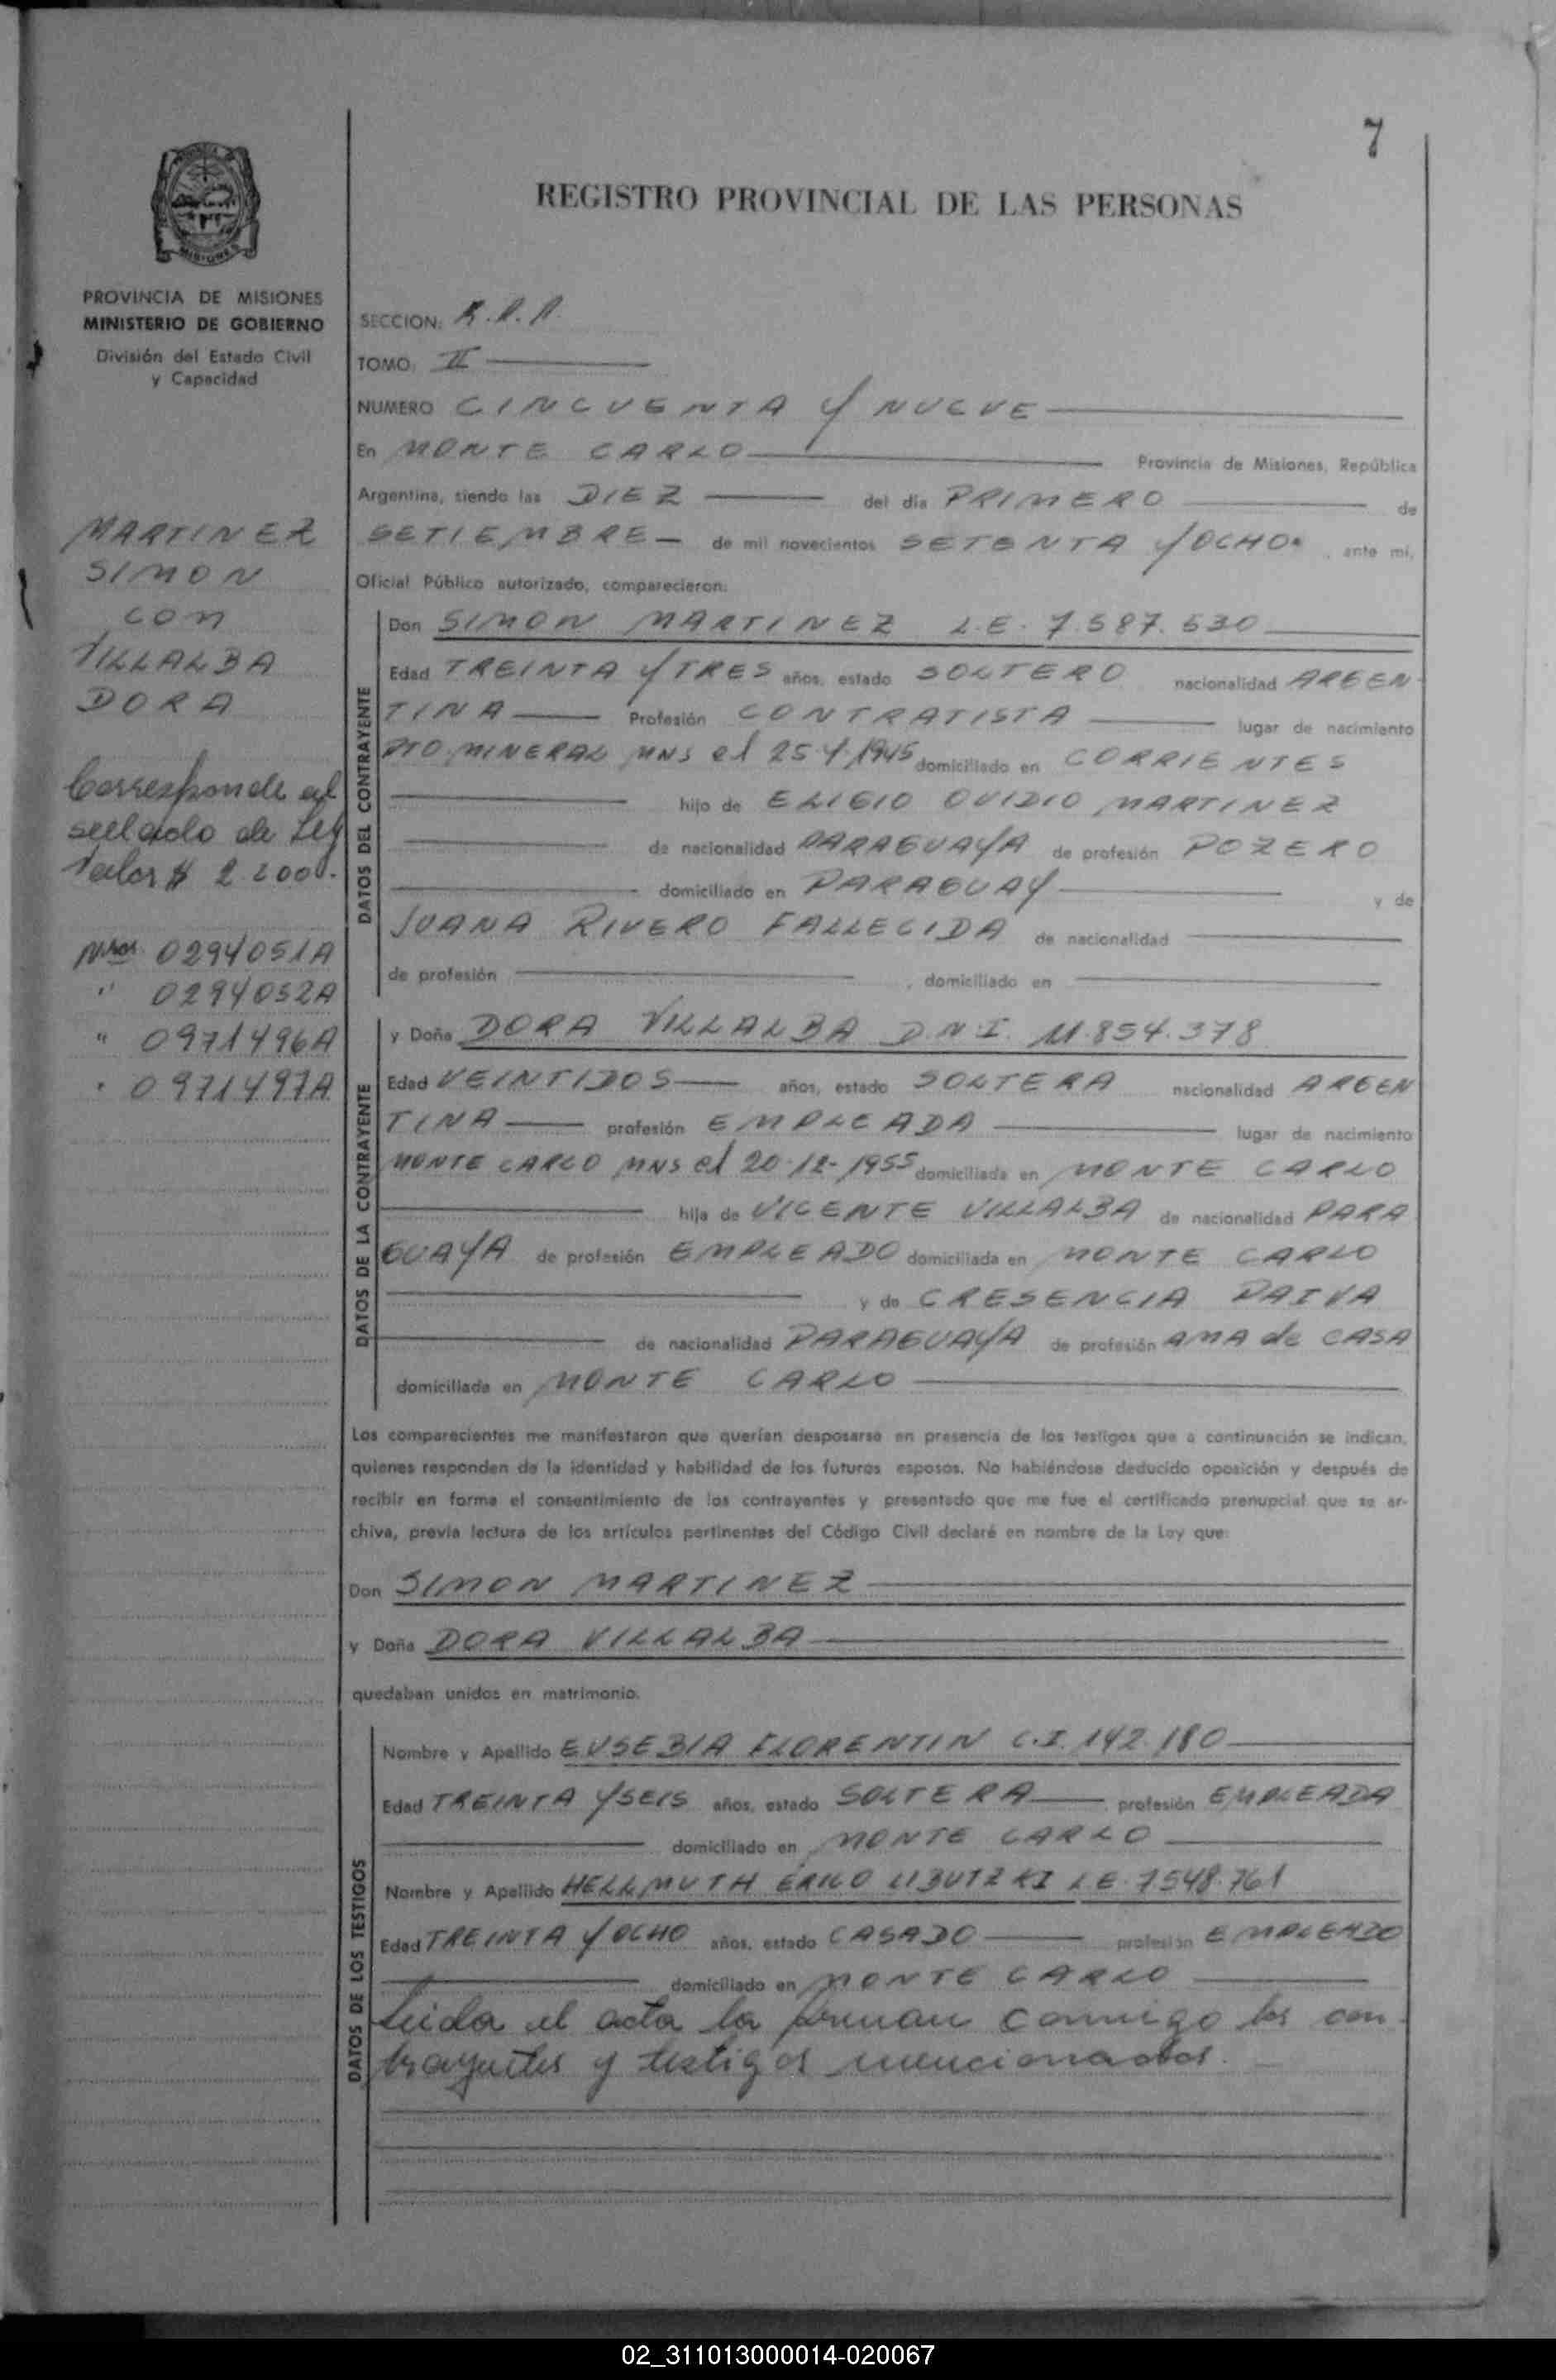 7
REGISTRO PROVINCIAL DE LAS PERSONAS
MISIONES
PROVINCIA DE MISIONES
MINISTERIO DE GOBIERNO
División del Estado Civil
y Capacidad
MARTINEZ
SIMON
con
VILLALBA
DORA
Corresponde al
sellado de Ley
Valor $ 2.200.-
Nros 0294051A
" 0294052A
" 0971496A
" 0971497A
SECCION:
TOMO: II
NUMERO CINCUENTA Y NUEVE
En MONTE CARLO Provincia de Misiones, República
Argentina, siendo las DIEZ del día PRIMERO de
SETIEMBRE de mil novecientos SETENTA Y OCHO. , ante mí,
Oficial Público autorizado, comparecieron:
DATOS DEL CONTRAYENTE
Don SIMON MARTINEZ L.E. 7.587.530
Edad TREINTA Y TRES años, estado SOLTERO nacionalidad ARGEN-
TINA Profesión CONTRATISTA lugar de nacimiento
PTO. MINERAL MNS el 25-4-1945 domiciliado en CORRIENTES
hijo de ELIGIO OVIDIO MARTINEZ
de nacionalidad PARAGUAYA de profesión POZERO
domiciliado en PARAGUAY y de
JUANA RIVERO FALLECIDA de nacionalidad
de profesión , domiciliado en
DATOS DE LA CONTRAYENTE
y Doña DORA VILLALBA D.N.I. 11.854.378
Edad VEINTIDOS años, estado SOLTERA nacionalidad ARGEN
TINA profesión EMPLEADA lugar de nacimiento
MONTE CARLO MNS el 20-12-1955 domiciliada en MONTE CARLO
hija de VICENTE VILLALBA de nacionalidad PARA
GUAYA de profesión EMPLEADO domiciliada en MONTE CARLO
y de CRESENCIA PAIVA
de nacionalidad PARAGUAYA de profesión AMA de CASA
domiciliada en MONTE CARLO
Los comparecientes me manifestaron que querían desposarse en presencia de los testigos que a continuación se indican,
quienes responden de la identidad y habilidad de los futuros esposos. No habiéndose deducido oposición y después de
recibir en forma el consentimiento de los contrayentes y presentado que me fue el certificado prenupcial que se ar-
chiva, previa lectura de los artículos pertinentes del Código Civil declaré en nombre de la Ley que:
Don SIMON MARTINEZ
y Doña DORA VILLALBA
quedaban unidos en matrimonio.
DATOS DE LOS TESTIGOS
Nombre y Apellido EUSEBIA FLORENTIN C.I. 142.180
Edad TREINTA Y SEIS años, estado SOLTERA profesión EMPLEADA
domiciliado en MONTE CARLO
Nombre y Apellido HELLMUTH ERICO LIBUTZKI L.E. 7548.761
Edad TREINTA Y OCHO años, estado CASADO profesión EMPLEADO
domiciliado en MONTE CARLO
Leida el acta la firman conmigo los con-
trayentes y testigos mencionados.
02_311013000014-020067